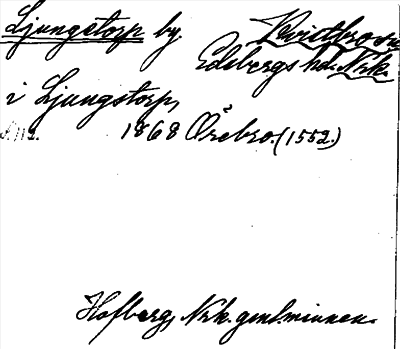 Ljungstorp by. Kvistbro sn
Edsbergs hd. Nrk.
i Ljungstorp,
1868 Örebro. (1552.)
Hofberg, Nrk. gml. minnen.